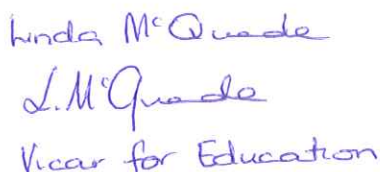 Linda McQuade
L. McQuade
Vicar for Education